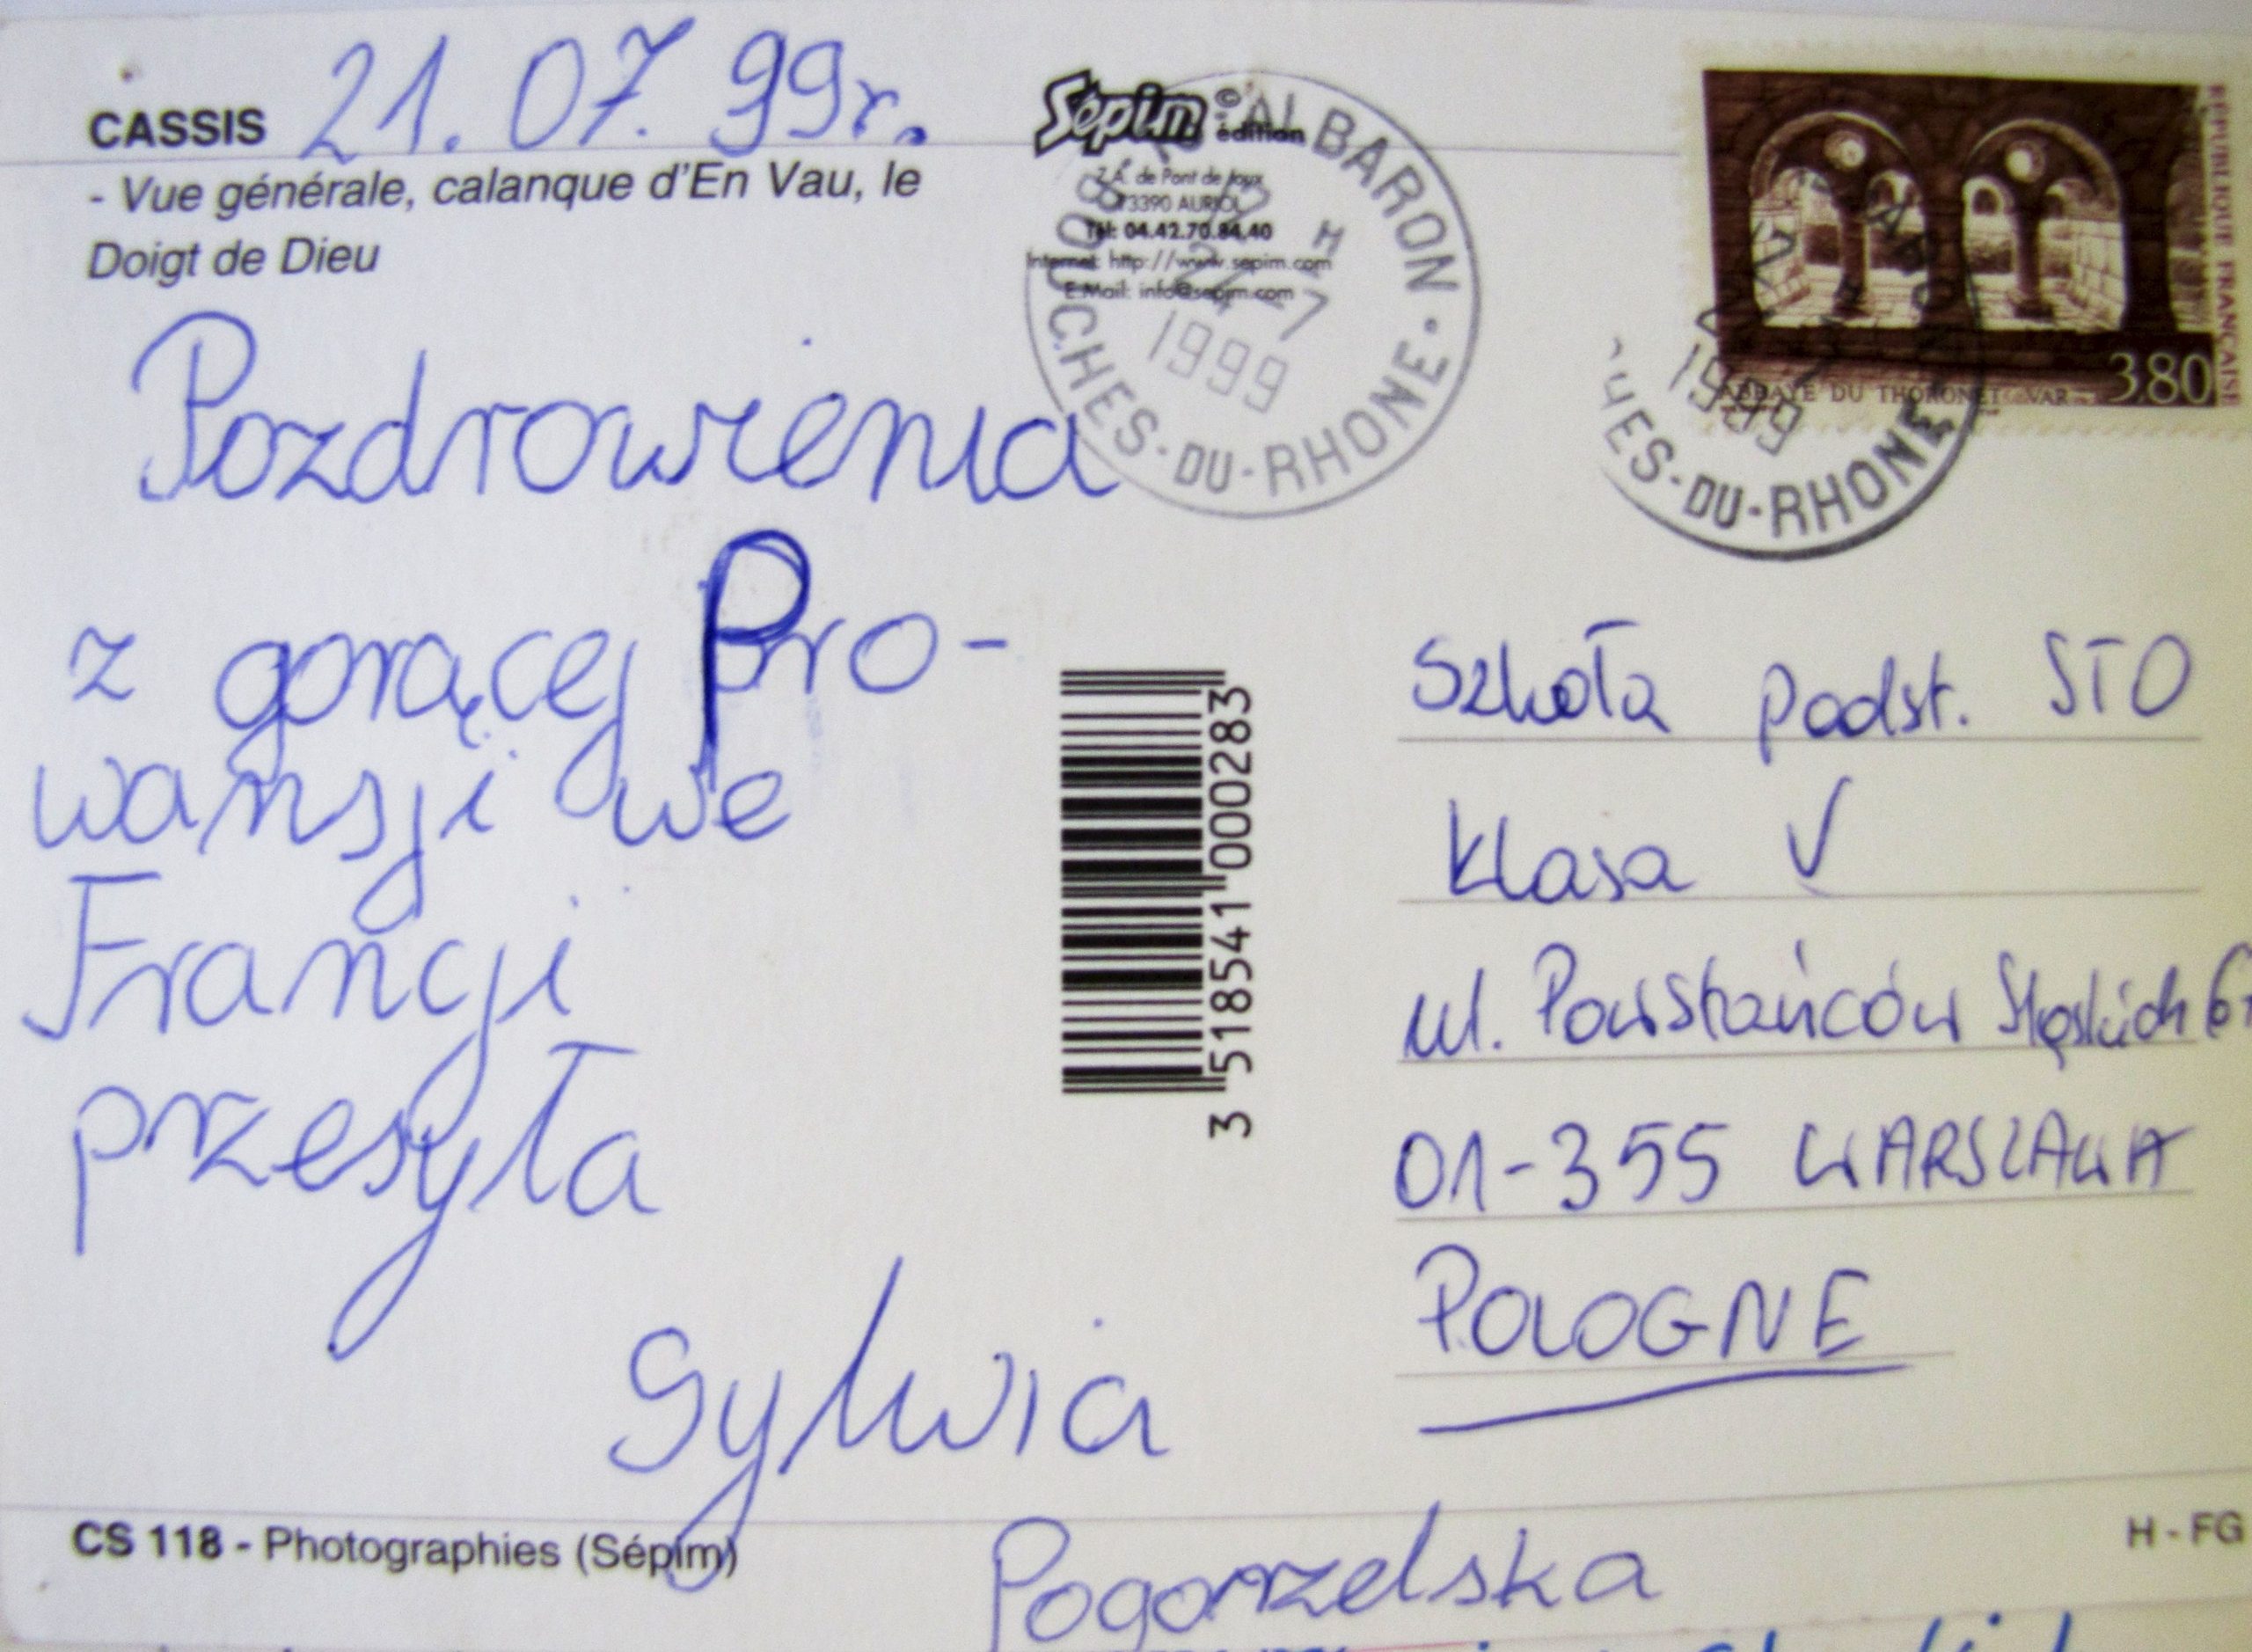 CASSIS 21.07.99r.
- Vue générale, calanque d'En Vau, le
Doigt de Dieu
Sépim © édition
Z.A. de Pont de Joux
13390 AURIOL
Tél: 04.42.70.84.40
Internet: http://www.sepim.com
E.Mail: info@sepim.com
ALBARON
H
-7
1999
BOUCHES-DU-RHONE
RÉPUBLIQUE FRANÇAISE
3,80
ABBAYE DU THORONET VAR
1999
HES-DU-RHONE
Pozdrowienia
z gorącej Pro-
wansji we
Francji
przesyła
Sylwia
Pogorzelska
3 518541 000283
Szkoła podst. STO
Klasa V
ul. Powstańców Śląskich
01-355 WARSZAWA
POLOGNE
CS 118 - Photographies (Sépim)
H - FG